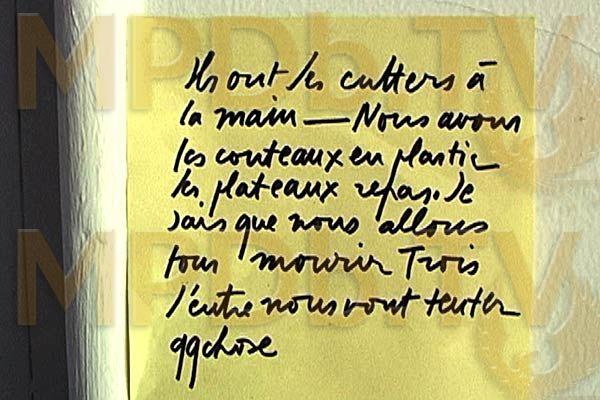 MPDb.TV
Ils ont les cutters à
la main — Nous avons
les couteaux en plastic
les plateaux repas. Je
sais que nous allons
tous mourir Trois
d'entre nous vont tenter
qqchose
MPDb.TV